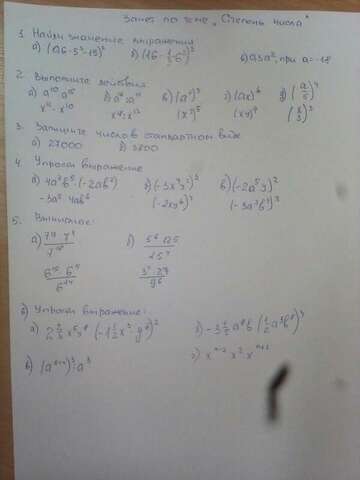 Зачет по теме „Степень числа"
1. Найти значение выражения
а) (126 - 5² - 15)² б) (16 - 1/3 · 6²)³ в) 0,3a², при a = -18
2. Выполните действия
а) a¹⁰ · a¹⁵ б) a¹⁶ : a¹¹ в) (a⁷)³ г) (ax)⁶ д) (a/5)⁴
x¹² · x¹⁰ x¹⁸ : x¹² (x³)⁵ (xy)⁹ (x/3)³
3. Запишите число в стандартном виде
а) 27000 б) 3800
4. Упрости выражение
а) 4a²b⁵ · (-2ab²) б) (-3x⁴y²)³ в) (-2a⁵y)²
-3a⁵ · 4ab⁶ (-2xy⁶)⁴ (-3a³b⁴)³
5. Вычислите:
а) 7¹¹ · 7⁹ / 7¹⁸ б) 5⁶ · 125 / 25³
6¹⁵ · 6⁹ / 6²⁴ 3⁷ · 27 / 9⁶
6) Упрости выражение:
а) 2 2/3 x⁵y⁸ (-1 1/2 x³ · y⁶)² б) -3 1/5 a⁸b (1/2 a³b⁸)³
в) (aⁿ⁺¹)³ : a³ г) xⁿ⁻² · x² · xⁿ⁺²